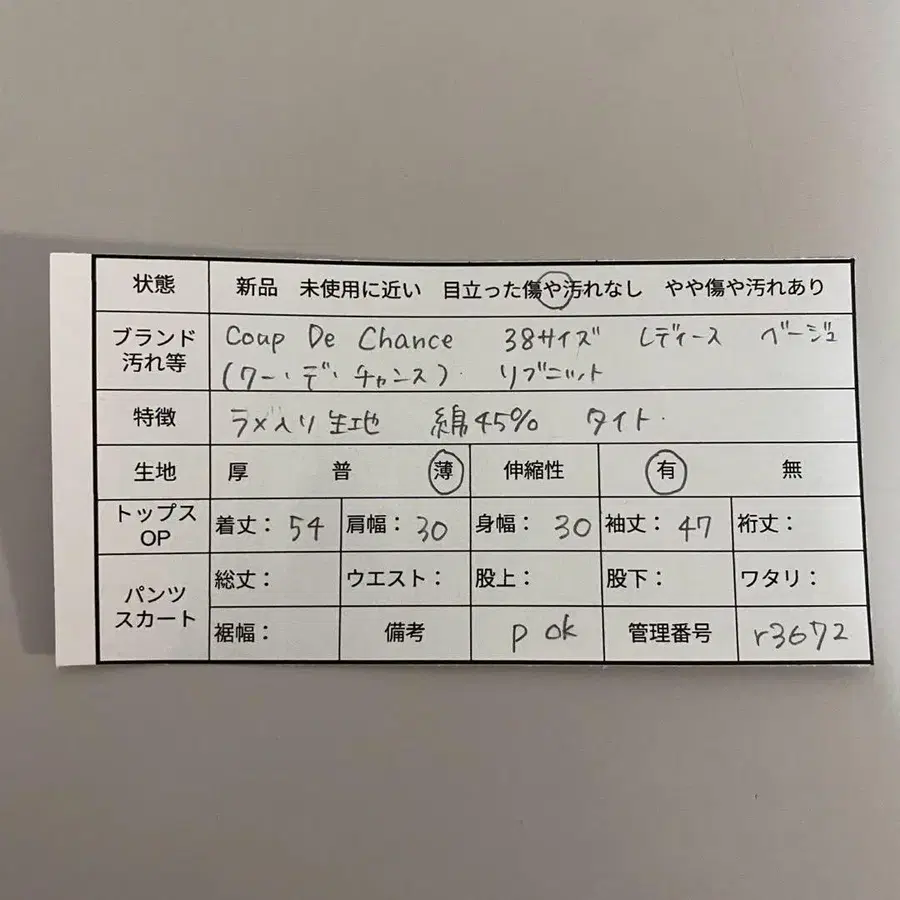 状態 新品 未使用に近い 目立った傷や汚れなし やや傷や汚れあり
ブランド 汚れ等 Coup De Chance 38サイズ レディース ベージュ
(クー・デ・チャンス) リブニット
特徴 ラメ入り生地 綿45% タイト
生地 厚 普 薄 伸縮性 有 無
トップス OP 着丈: 54 肩幅: 30 身幅: 30 袖丈: 47 裄丈:
パンツ スカート 総丈: ウエスト: 股上: 股下: ワタリ:
裾幅: 備考 p ok 管理番号 r3672